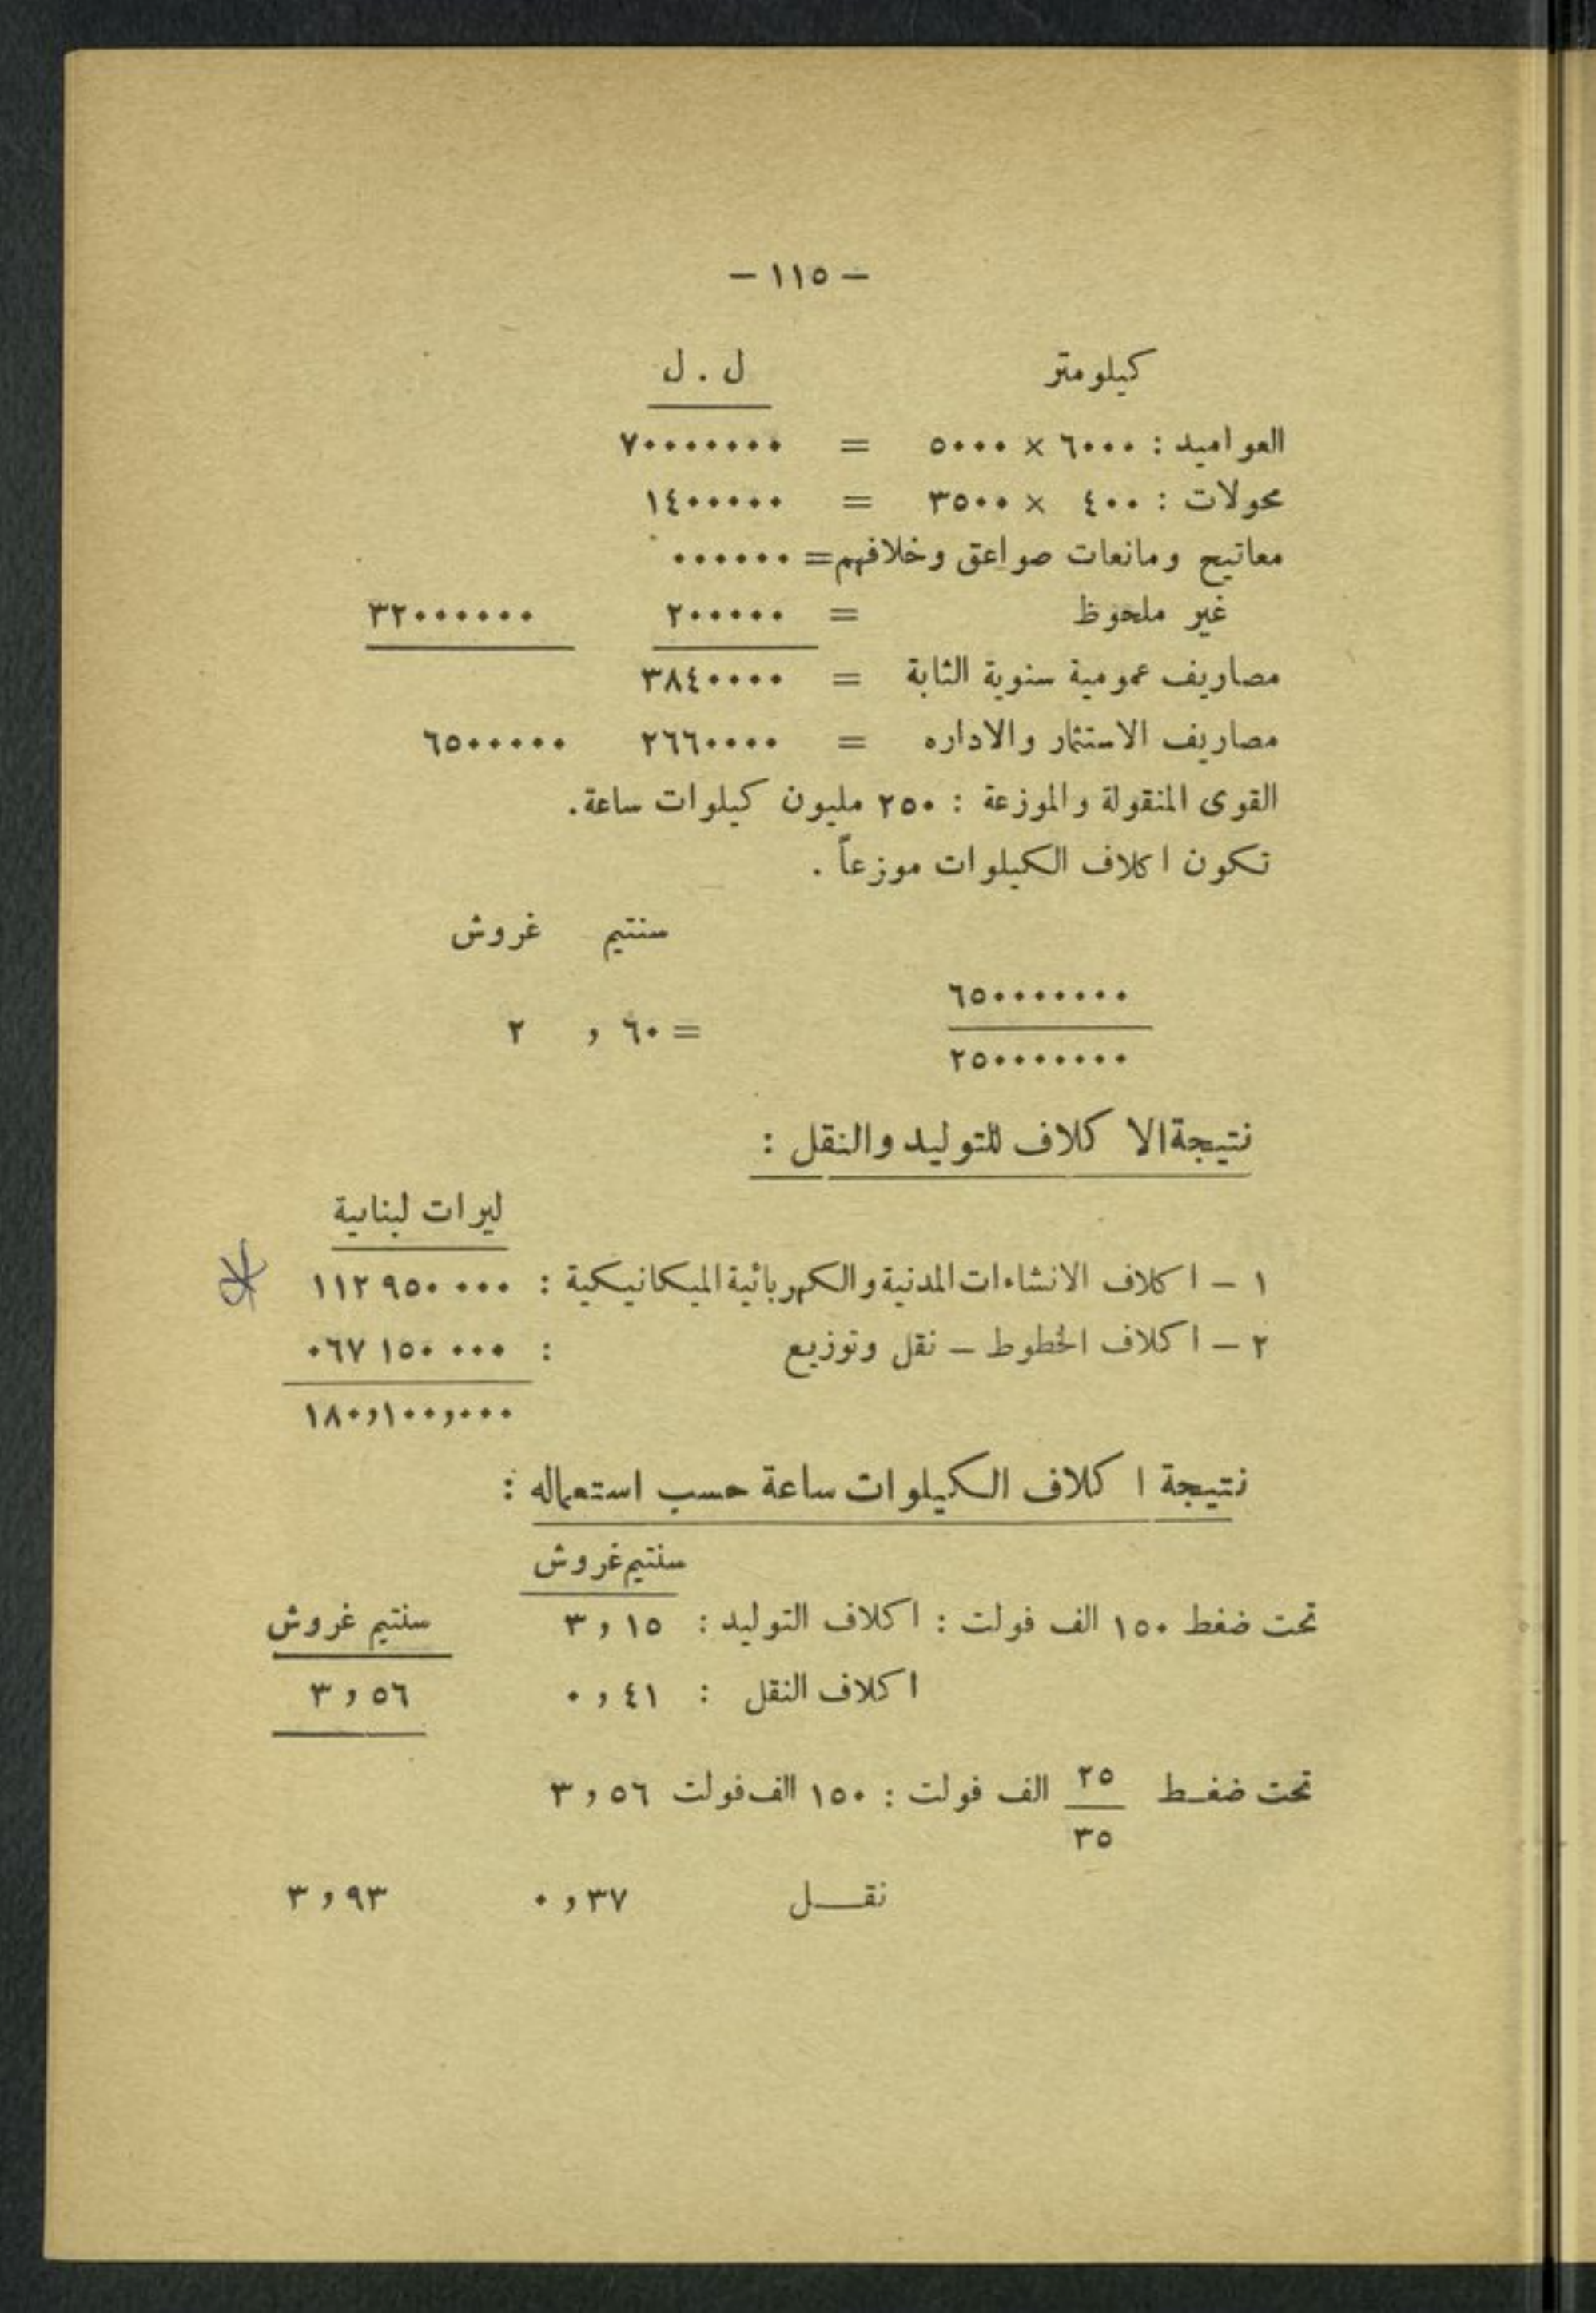 — ١١٥ —
كيلومتر ل . ل
العواميد : ٦٠٠٠ × ٥٠٠٠ = ٧٠٠٠٠٠٠٠
محولات : ٤٠٠ × ٣٥٠٠ = ١٤٠٠٠٠٠
معاتيح ومانعات صواعق وخلافهم = ٠٠٠٠٠٠
غير ملحوظ = ٢٠٠٠٠٠ ٣٢٠٠٠٠٠٠
مصاريف عمومية سنوية الثابة = ٣٨٤٠٠٠٠
مصاريف الاستثمار والاداره = ٢٦٦٠٠٠٠ ٦٥٠٠٠٠٠
القوى المنقولة والموزعة : ٢٥٠ مليون كيلوات ساعة.
تكون اكلاف الكيلوات موزعاً .
سنتيم غروش
٦٥٠٠٠٠٠٠٠
= ٦٠ , ٢
٢٥٠٠٠٠٠٠٠
نتيجة الاكلاف للتوليد والنقل :
ليرات لبنانية
١ — اكلاف الانشاءات المدنية والكهربائية الميكانيكية : ١١٢ ٩٥٠ ٠٠٠
٢ — اكلاف الخطوط — نقل وتوزيع : ٠٦٧ ١٥٠ ٠٠٠
١٨٠,١٠٠,٠٠٠
نتيجة اكلاف الكيلوات ساعة حسب استعماله :
سنتيم غروش
تحت ضغط ١٥٠ الف فولت : اكلاف التوليد : ٣,١٥ سنتيم غروش
اكلاف النقل : ٠,٤١ ٣,٥٦
تحت ضغط ٢٥ الف فولت : ١٥٠ الف فولت ٣,٥٦
٣٥
نقل ٠,٣٧ ٣,٩٣